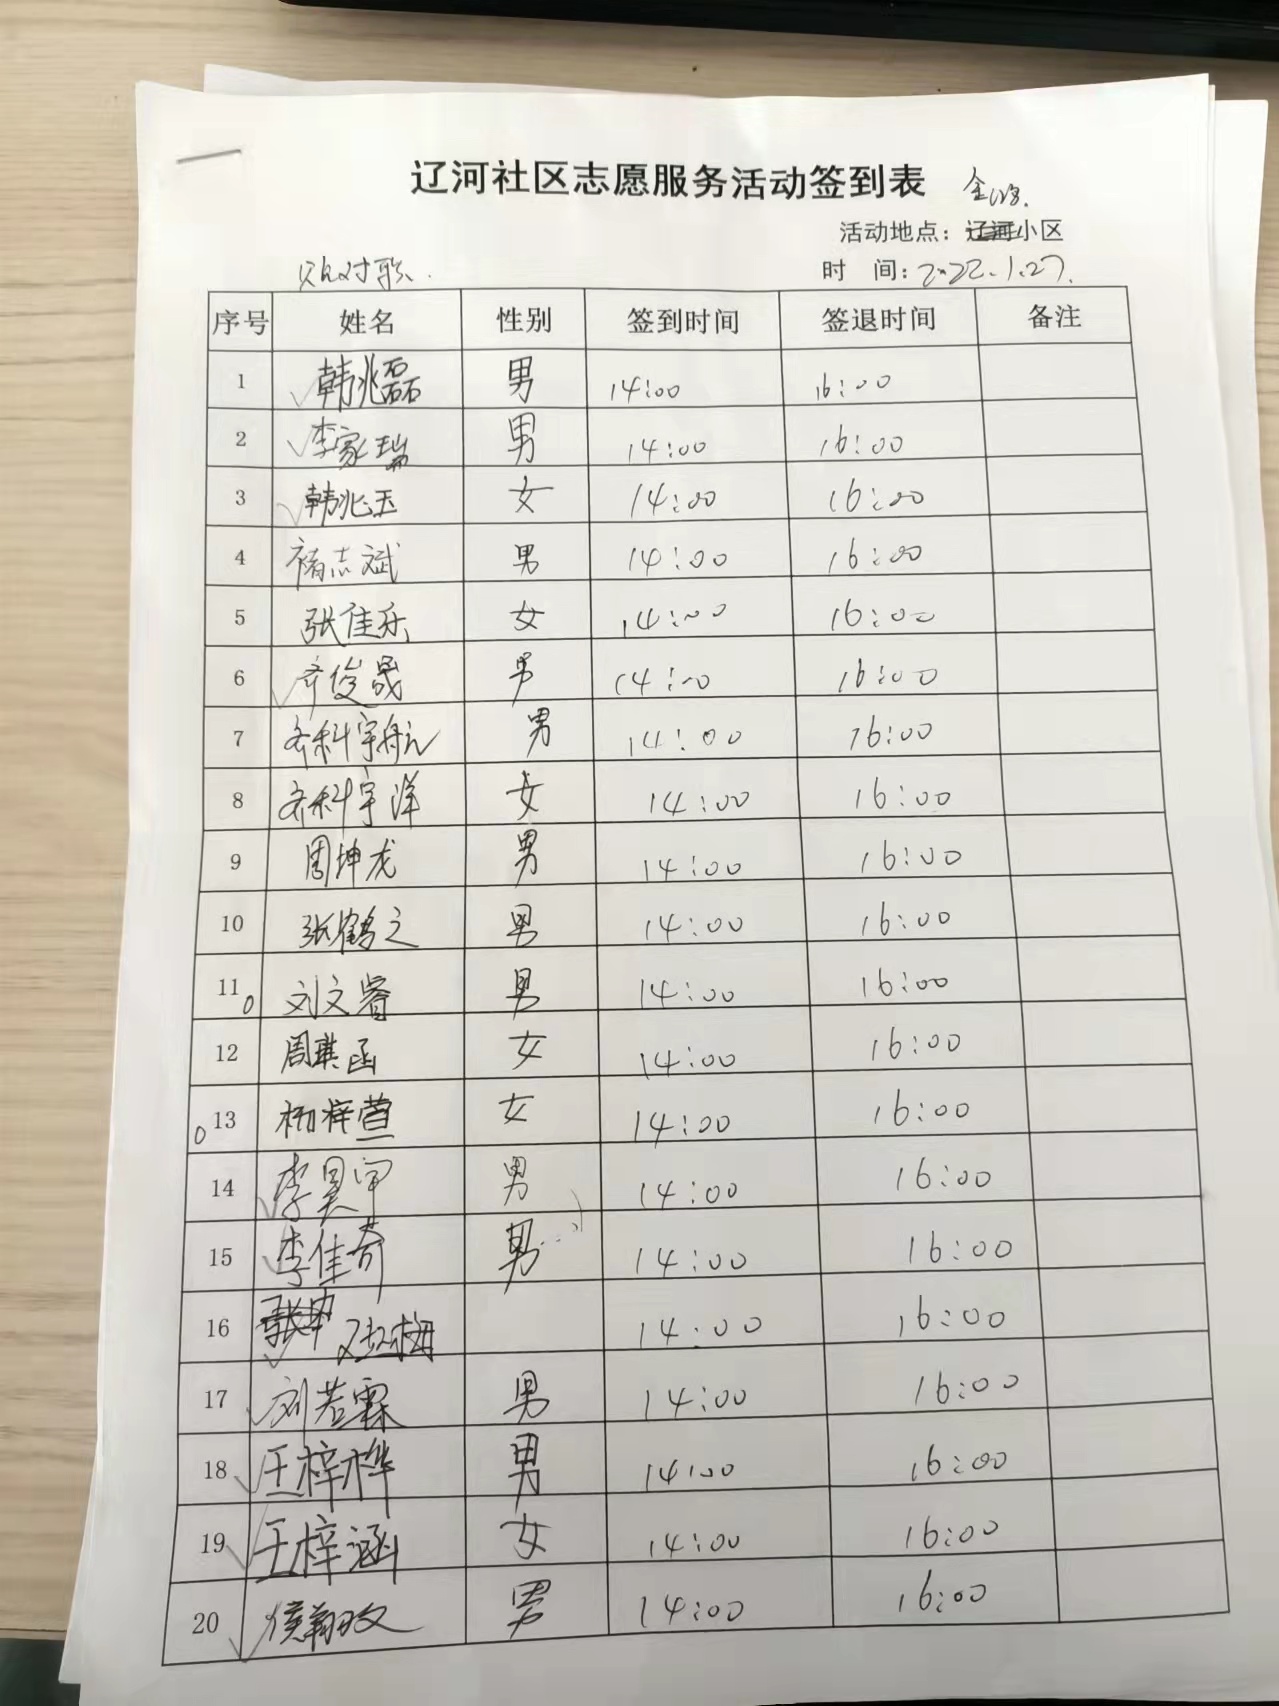 辽河社区志愿服务活动签到表
活动地点：辽河小区
贴对联.
时 间：2022.1.27.
序号 姓名 性别 签到时间 签退时间 备注
1 韩兆磊 男 14:00 16:00
2 李家瑞 男 14:00 16:00
3 韩兆玉 女 14:00 16:00
4 褚志斌 男 14:00 16:00
5 张佳乐 女 14:00 16:00
6 齐俊晟 男 14:00 16:00
7 齐科宇航 男 14:00 16:00
8 齐科宇洋 女 14:00 16:00
9 周坤龙 男 14:00 16:00
10 张鹤之 男 14:00 16:00
11 刘文睿 男 14:00 16:00
12 周琪函 女 14:00 16:00
13 杨梓萱 女 14:00 16:00
14 李昊宇 男 14:00 16:00
15 李佳奇 男 14:00 16:00
16 14:00 16:00
17 刘若霖 男 14:00 16:00
18 王梓桦 男 14:00 16:00
19 王梓涵 女 14:00 16:00
20 男 14:00 16:00